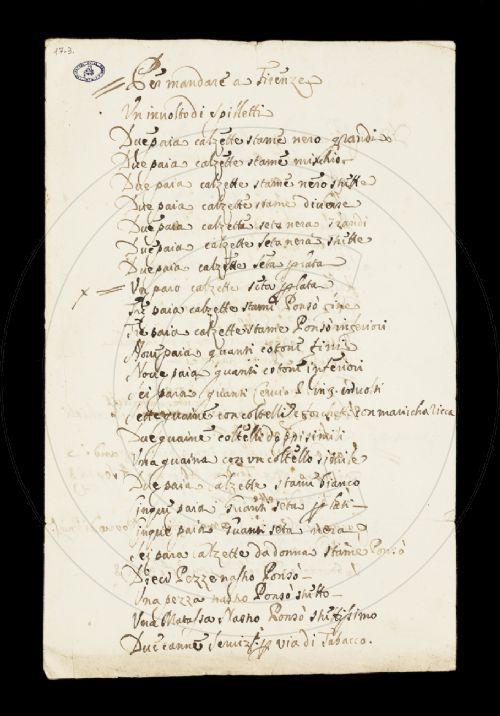 17.3.
Per mandare a Firenze
Un involto di Spilletti
Due paia calzette stame nero grandi
Due paia calzette stame mischio
Due paia calzette stame nero strette
Due paia calzette stame diverse
Due paia calzette seta nera grandi
Due paia calzette seta nera strette
Due paia calzette seta
Un paro calzette seta
Tre paia calzette stame Ponsò fine
Tre paia calzette stame Ponsò inferiori
Nove paia guanti cotone fini
Nove paia guanti cotone inferiori
Sei paia guanti cervio in 3 involti
Sette guaine con coltelli e con manicha
Due guaine coltelli doppi simili
Una guaina con un coltello simile
Due paia calzette stame bianco
cinque paia guanti seta
cinque paia guanti seta nera
Sei paia calzette da donna stame Ponsò
Dieci Pezze nastro Ponsò
Una pezza nastro Ponsò stretto
Una Matassa Nastro Ponsò strettissimo
Due canne via di Tabacco.